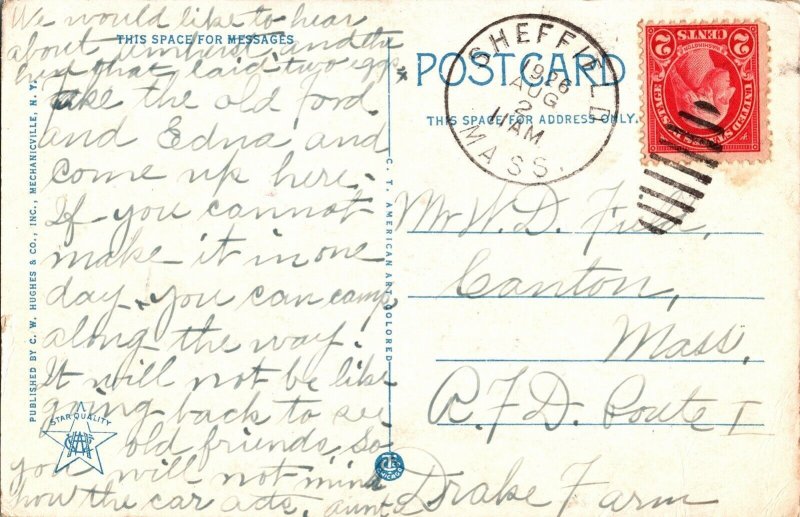 We would like to hear
about Amherst and the
hen that laid two eggs
THIS SPACE FOR MESSAGES
Take the old ford
and Edna and
come up here.
If you cannot
make it in one
day, you can camp
along the way.
It will not be like
going back to see
old friends, so
you will not mind
how the car acts. aunt
PUBLISHED BY C. W. HUGHES & CO., INC., MECHANICVILLE, N. Y.
STAR QUALITY
C. T. AMERICAN ART COLORED
CHICAGO
POSTCARD
THIS SPACE FOR ADDRESS ONLY.
SHEFFIELD
1926
AUG
2
11 AM
MASS.
UNITED STATES POSTAGE
WASHINGTON
2 CENTS 2
Mr W. D. Field,
Canton,
Mass.
R. F. D. Route 1
Drake Farm